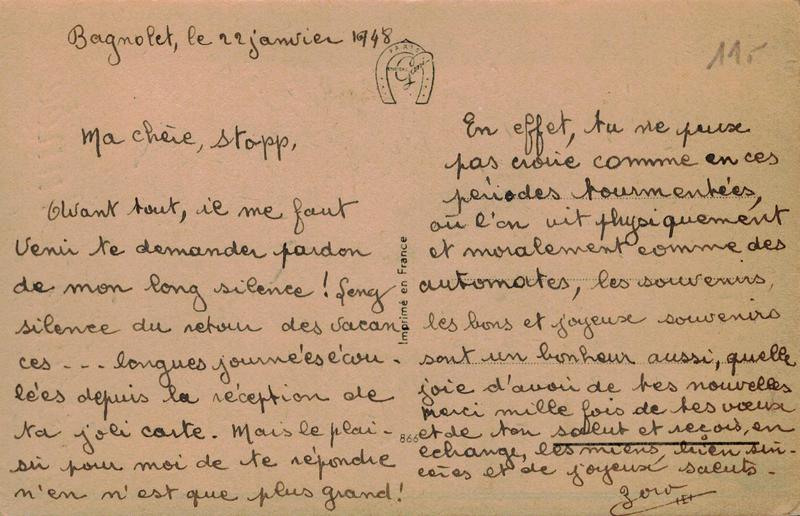 Bagnolet, le 22 janvier 1948
PARIS
11.-
Ma chère, stopp,
Avant tout, il me faut
venir te demander pardon
de mon long silence ! Long
silence du retour des vacan
ces - - - longues journées écou-
lées depuis la réception de
ta joli carte. Mais le plai-
sir pour moi de te répondre
n'en n'est que plus grand !
Imprimé en France
866
En effet, tu ne peux
pas croire comme en ces
périodes tourmentées,
où l'on vit physiquement
et moralement comme des
automates, les souvenirs,
les bons et joyeux souvenirs
sont un bonheur aussi, quelle
joie d'avoir de tes nouvelles
Merci mille fois de tes vœux
et de ton salut et reçois, en
échange, les miens, bien sin-
cères et de joyeux saluts.